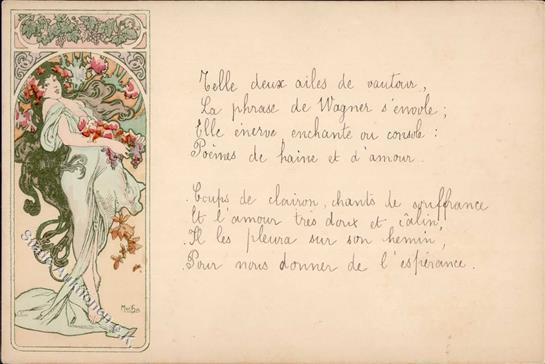 Telle deux ailes de vautour,
La phrase de Wagner s'envole ;
Elle énerve enchante ou console :
Poèmes de haine et d'amour.
Coups de clairon, chants de souffrance
Et l'amour très doux et câlin,
Il les pleura sur son chemin,
Pour nous donner de l'espérance.
Mucha